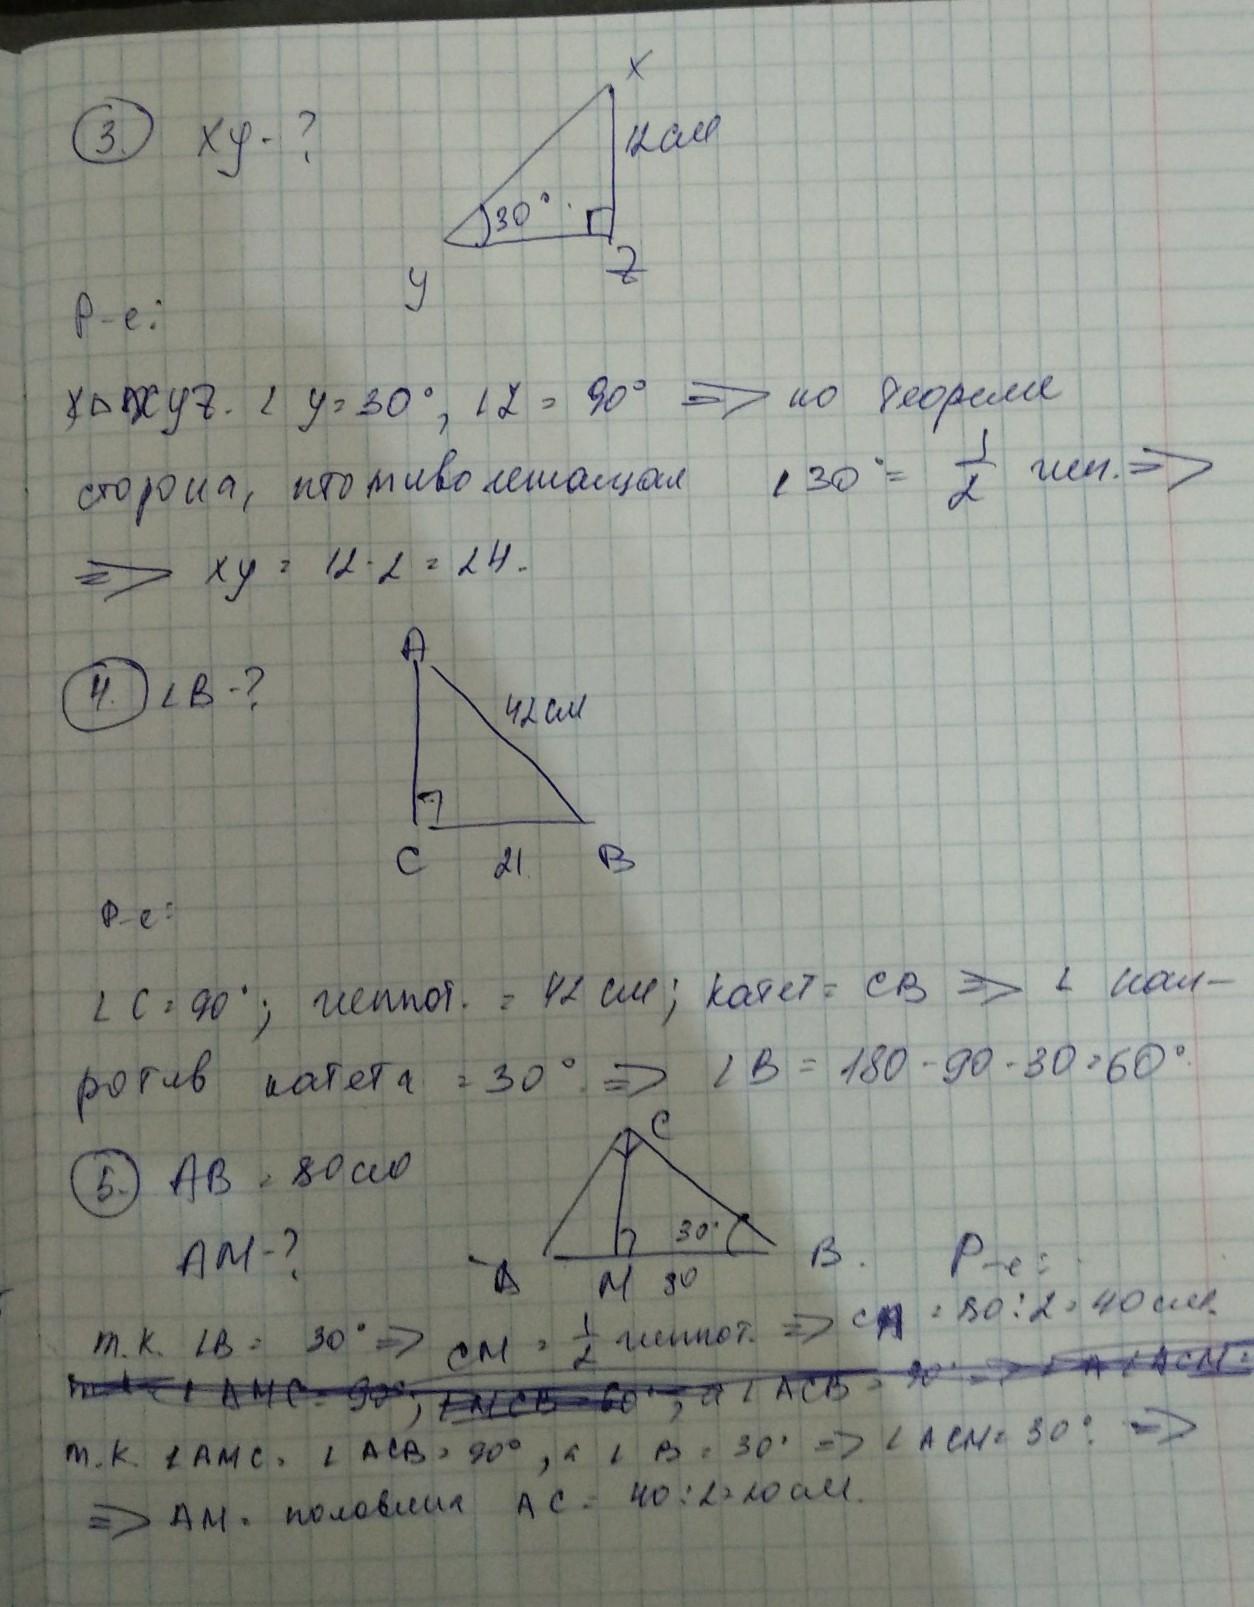 3. XY-?
X
12 см
30°
Y
Z
Р-е:
△XYZ. ∠Y=30°, ∠Z=90° => по теореме
сторона, противолежащая ∠30°= 1/2 гип. =>
=> XY = 12·2 = 24.
4. ∠B-?
A
42 см
C
21
B
Р-е:
∠C=90°; гиппот. = 42 см; катет = CB => ∠ нап-
ротив катета = 30° => ∠B = 180-90-30=60°.
5. AB = 80 см
AM-?
C
30°
A
M
80
B.
Р-е:
т.к. ∠B = 30° => CM = 1/2 гиппот. => CA = 80:2=40 см.
∠AMC=90°; ∠MCB=60°; а ∠ACB=90° => ∠ACM=
т.к. ∠AMC = ∠ACB=90°, а ∠B=30° => ∠ACM=30° =>
=> AM = половина AC = 40:2=20 см.